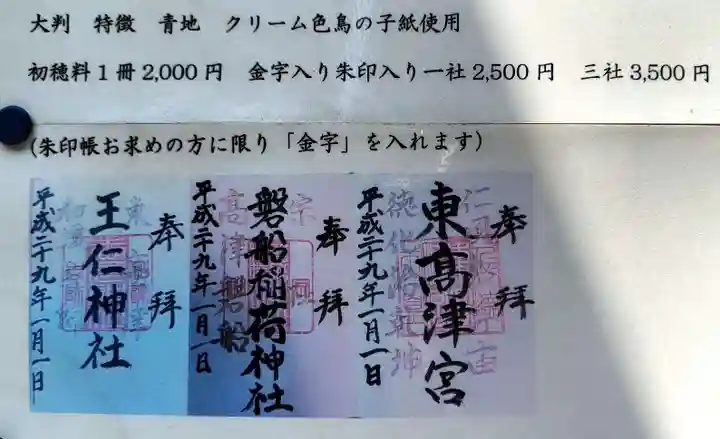 大判　特徴　青地　クリーム色鳥の子紙使用
初穂料１冊2,000円　金字入り朱印入り一社2,500円　三社3,500円
(朱印帳お求めの方に限り「金字」を入れます)
奉拝
東高津宮
平成二十九年一月一日
奉拝
磐船稲荷神社
高津磐船
平成二十九年一月一日
奉拝
王仁神社
平成二十九年一月一日